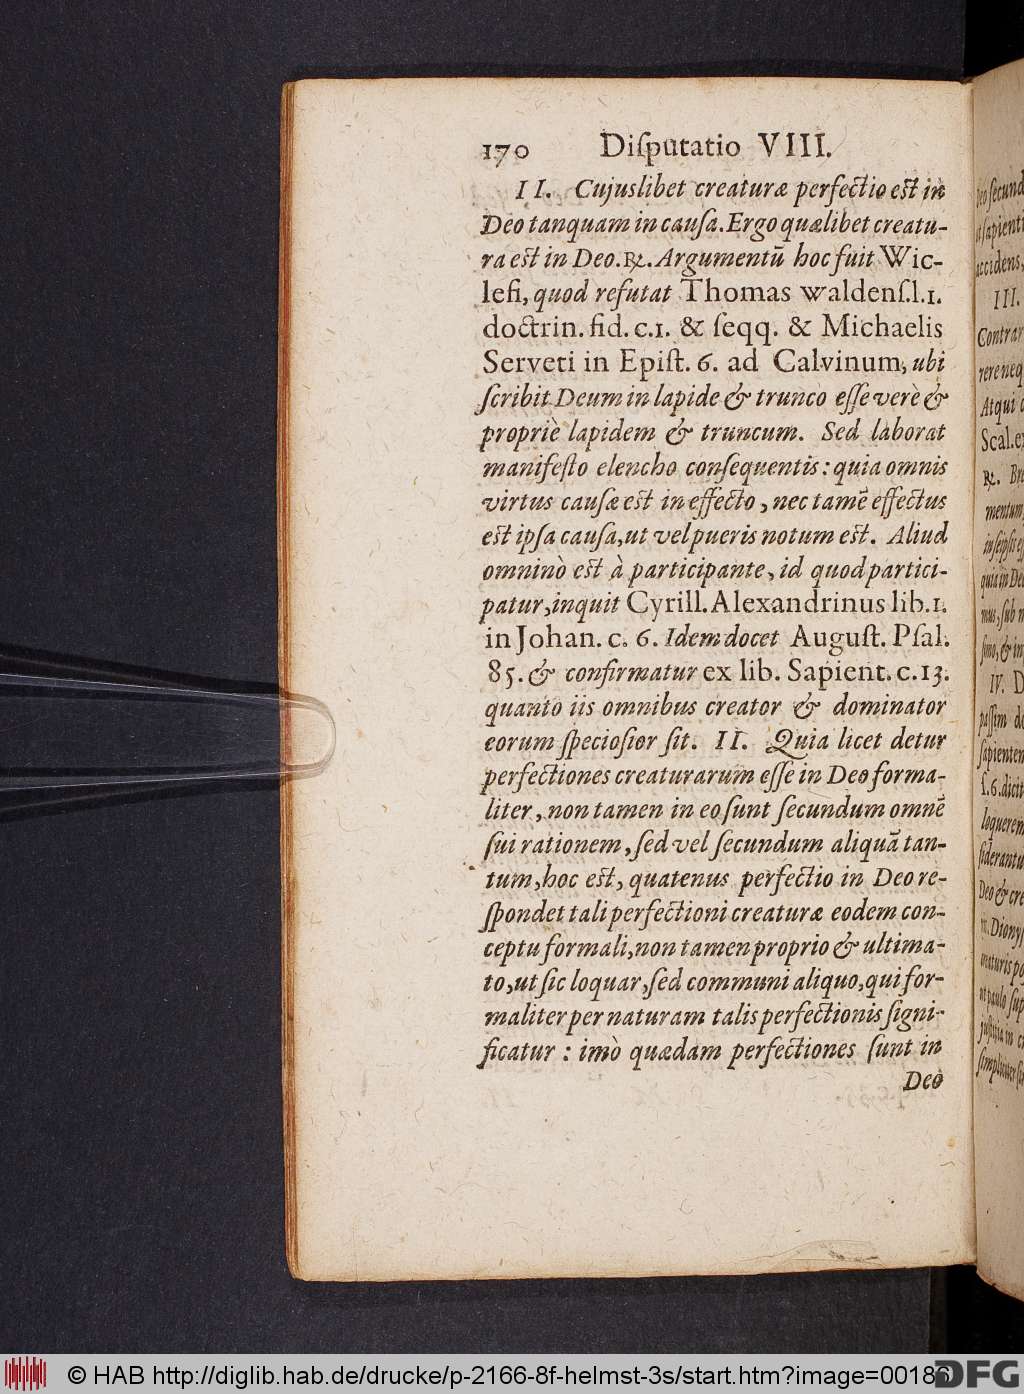 170 Diſputatio VIII.
II. Cujuslibet creaturæ perfectio est in
Deo tanquam in cauſa. Ergo quælibet creatu-
ra est in Deo. ℞. Argumentū hoc fuit Wic-
lefi, quod refutat Thomas waldenſ. l. 1.
doctrin. fid. c. 1. & ſeqq. & Michaelis
Serveti in Epiſt. 6. ad Calvinum, ubi
ſcribit Deum in lapide & trunco eſſe verè &
propriè lapidem & truncum. Sed laborat
manifeſto elencho conſequentis: quia omnis
virtus cauſæ est in effecto, nec tamē effectus
est ipſa cauſa, ut vel pueris notum est. Aliud
omninò est à participante, id quod partici-
patur, inquit Cyrill. Alexandrinus lib. 1.
in Johan. c. 6. Idem docet Auguſt. Pſal.
85. & confirmatur ex lib. Sapient. c. 13.
quanto iis omnibus creator & dominator
eorum ſpecioſior ſit. II. Quia licet detur
perfectiones creaturarum eſſe in Deo forma-
liter, non tamen in eo ſunt ſecundum omnē
ſui rationem, ſed vel ſecundum aliquā tan-
tum, hoc est, quatenus perfectio in Deo re-
ſpondet tali perfectioni creaturæ eodem con-
ceptu formali, non tamen proprio & ultima-
to, ut ſic loquar, ſed communi aliquo, qui for-
maliter per naturam talis perfectionis ſigni-
ficatur: imò quædam perfectiones ſunt in
Deo
III.
Contrar
Atqui
Scal. ex
℞. Bre
mentum
IV. D
paſſim do
ſapientem
ſ. 6. dicit
loquerem
ſiderantu
Deo & cre
© HAB http://diglib.hab.de/drucke/p-2166-8f-helmst-3s/start.htm?image=00186
DFG